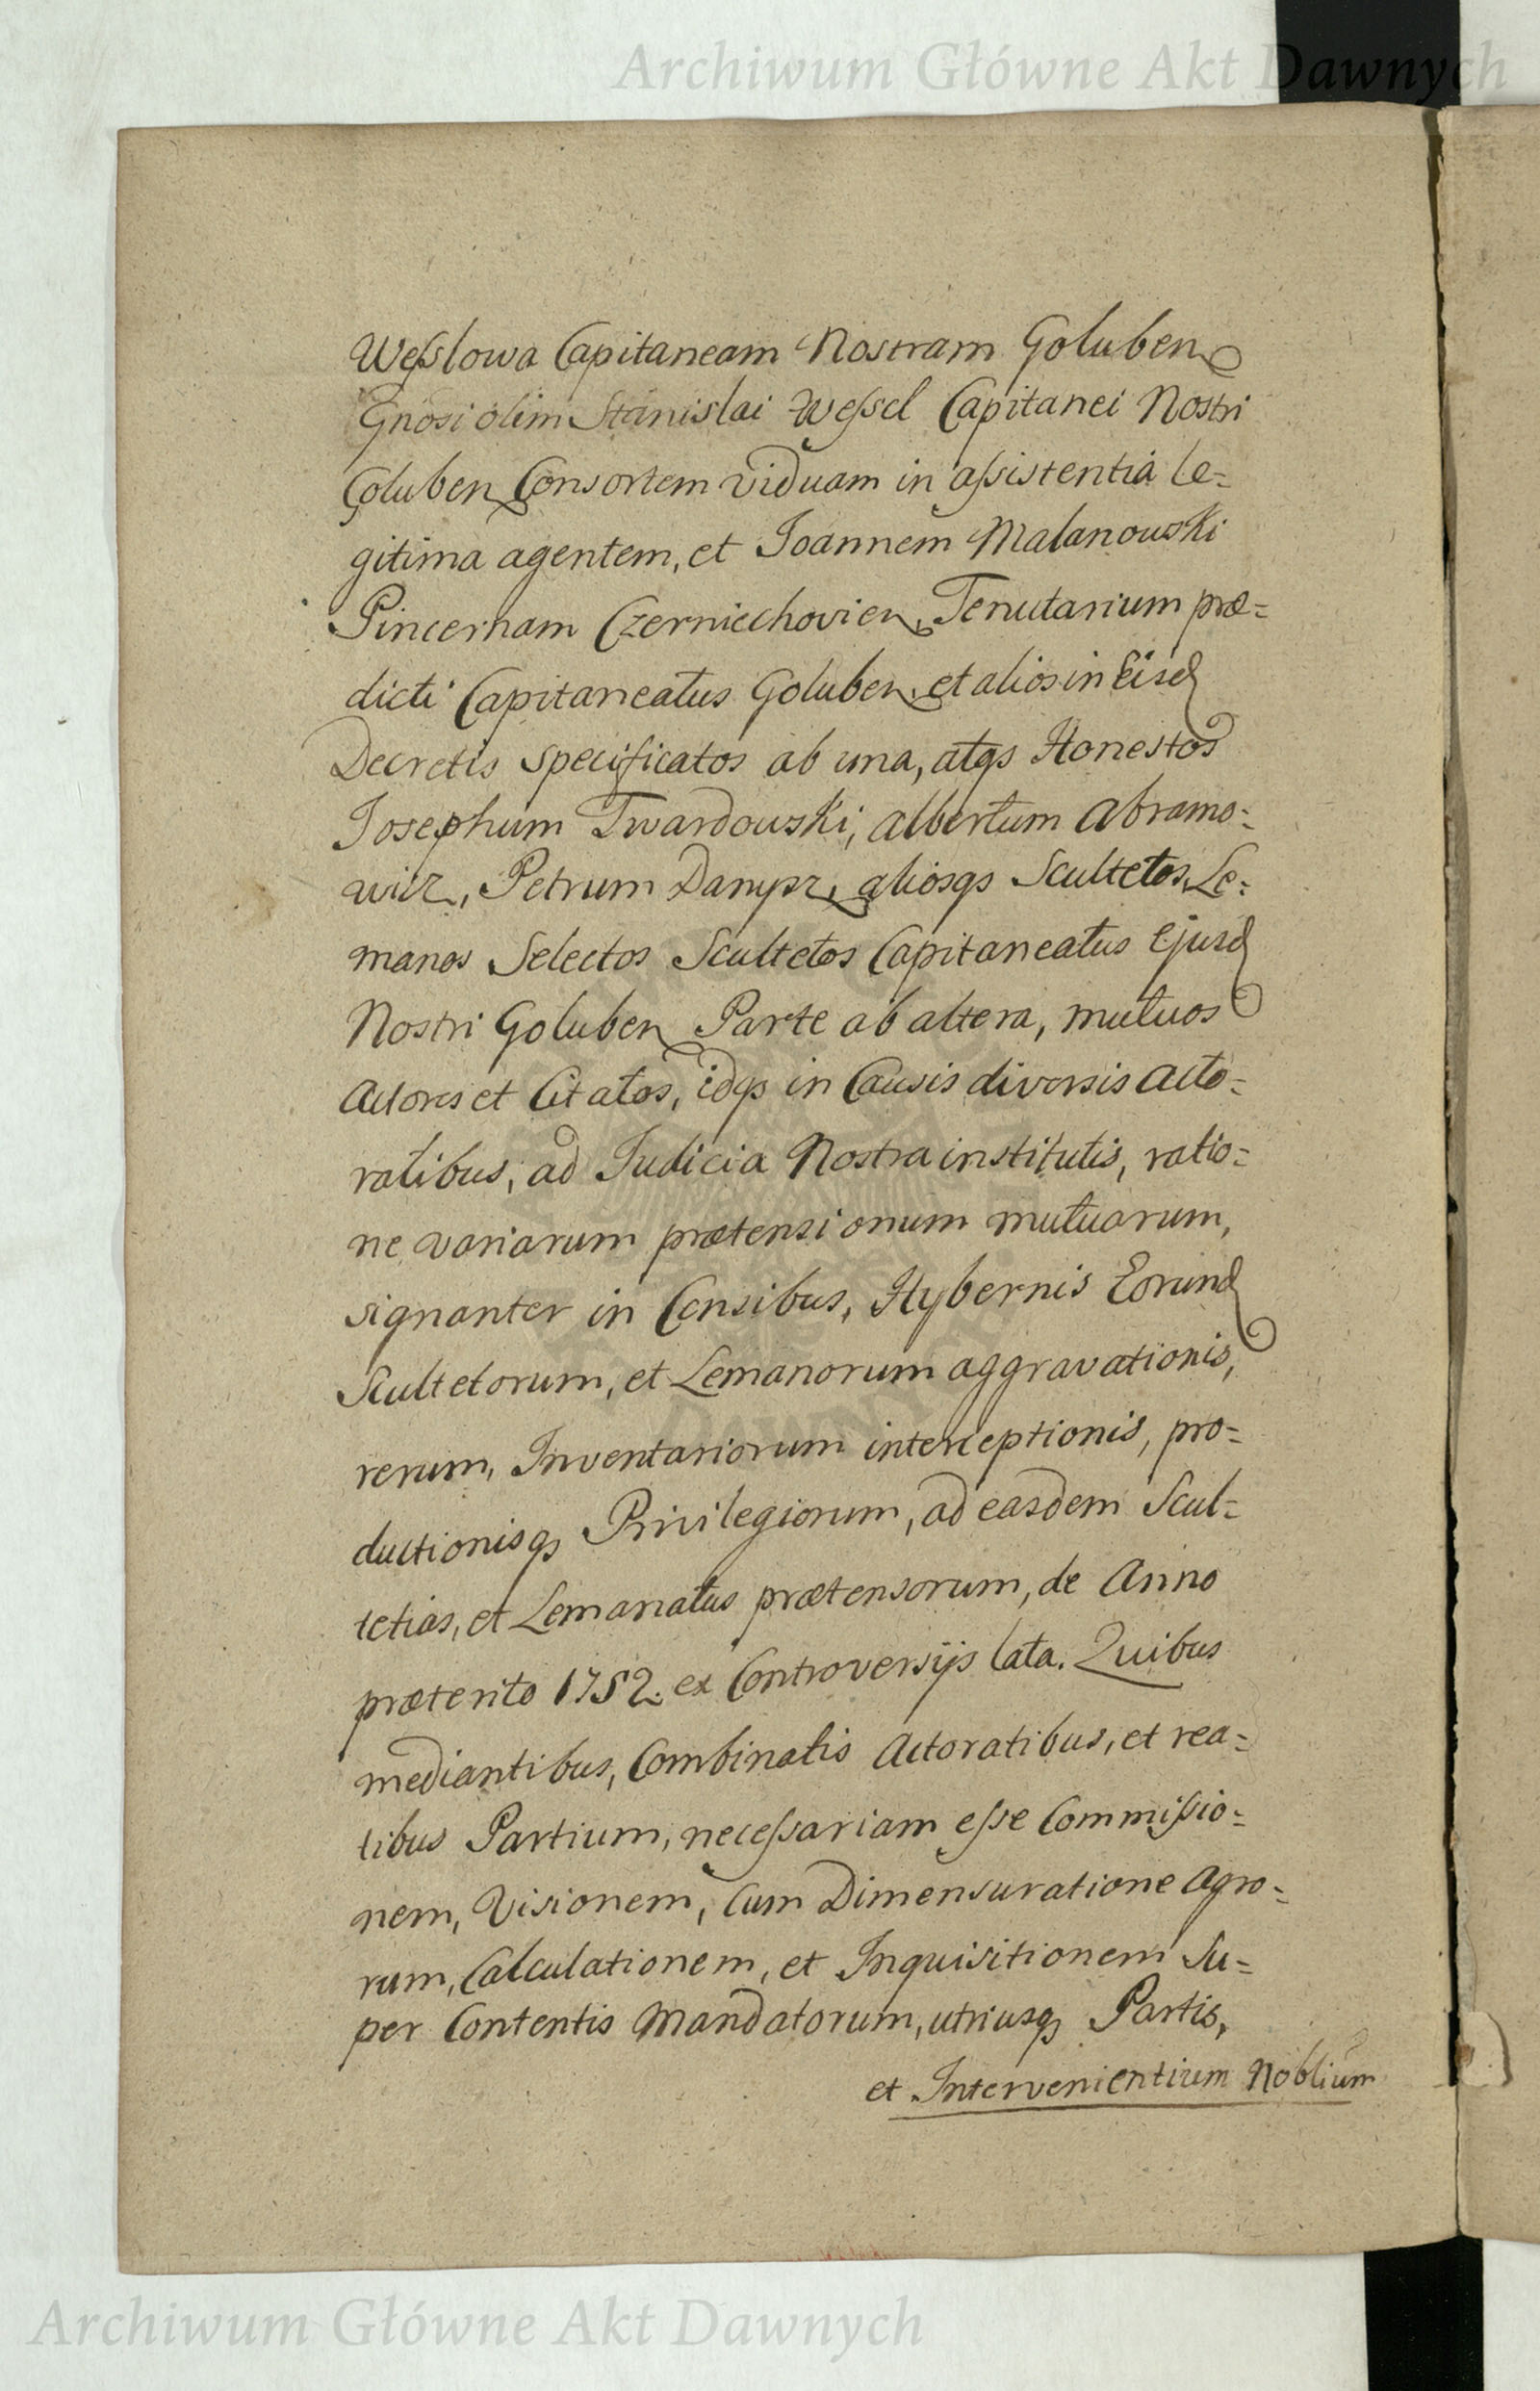 Archiwum Główne Akt Dawnych
Weſslowa Capitaneam Nostram Goluben
Gnosi olim Stanislai Weſsel Capitanei Nostri
Goluben Consortem viduam in aſsistentia Le=
gitima agentem, et Joannem Malanowski
Pincernam Czerniechovien, Tenutarium præ=
dicti Capitaneatus Goluben. et alios in Eisd
Decretis specificatos ab una, atqs Honestos
Josephum Twardowski, Albertum Abramo=
wicz, Petrum Dampz, aliosqs Scultetos, Le=
manos Selectos Scultetos Capitaneatus Ejusd
Nostri Goluben Parte ab altera, mutuos
Actores et Citatos, idqs in Causis diversis Acto=
ratibus, ad Judicia Nostra institutis, ratio=
ne variarum prætensionum mutuarum,
signanter in Censibus, Hybernis Eorund
Scultetorum, et Lemanorum aggravationis,
rerum, Inventariorum interceptionis, pro=
ductionisqs Privilegiorum, ad easdem Scul=
tetias, et Lemanatus prætensorum, de Anno
præterito 1752. ex Controversijs lata. Quibus
mediantibus, Combinatis Actoratibus, et rea=
tibus Partium, neceſsariam eſse Commiſsio=
nem, Visionem, cum Dimensuratione Agro=
rum, Calculationem, et Inquisitionem Su=
per Contentis Mandatorum, utriusqs Partis,
et Intervenientium Noblium
Archiwum Główne Akt Dawnych